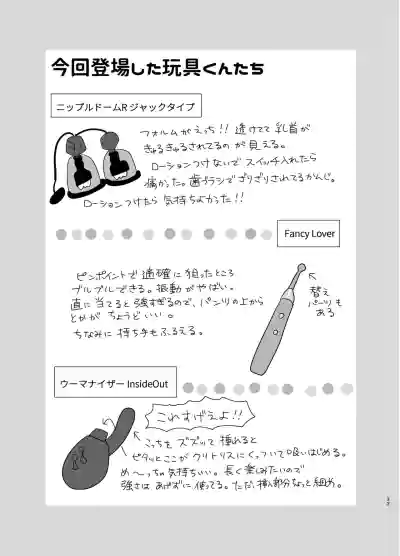 今回登場した玩具くんたち
ニップルドームR ジャックタイプ
フォルムがえっち!! 透けてて乳首が
きゅるきゅるされてるのが見える。
ローションつけないでスイッチ入れたら
痛かった。歯ブラシでぎりぎりされてるかんじ。
ローションつけたら気持ちよかった!!
Fancy Lover
ピンポイントで適確に狙ったところ
ブルブルできる。振動がやばい。
直に当てると強すぎるので、パンツの上から
とかがちょうどいい。
ちなみに持ち手もふるえる。
替え
パーツも
ある
ウーマナイザー InsideOut
これすげえよ!!
こっちをズズッて挿れると
ピタッとここがクリトリスにくっついて吸いはじめる。
め〜っちゃ気持ちいい。長く楽しみたいので
強さはあげずに使ってる。ただ、挿入部分なっと細め。